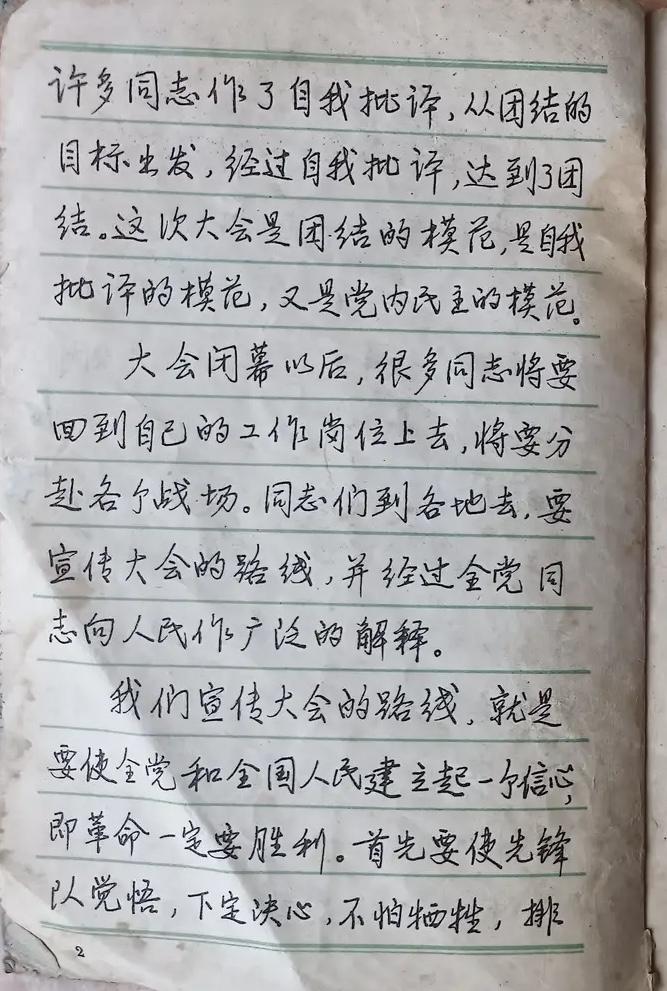 许多同志作了自我批评,从团结的
目标出发,经过自我批评,达到了团
结。这次大会是团结的模范,是自我
批评的模范,又是党内民主的模范。
大会闭幕以后,很多同志将要
回到自己的工作岗位上去,将要分
赴各个战场。同志们到各地去,要
宣传大会的路线,并经过全党同
志向人民作广泛的解释。
我们宣传大会的路线,就是
要使全党和全国人民建立起一个信心,
即革命一定要胜利。首先要使先锋
队觉悟,下定决心,不怕牺牲,排
2